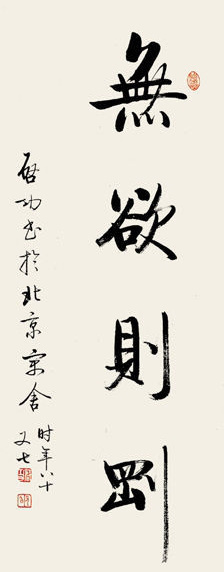 無欲則剛
启功书於北京寓舍
时年八十又七